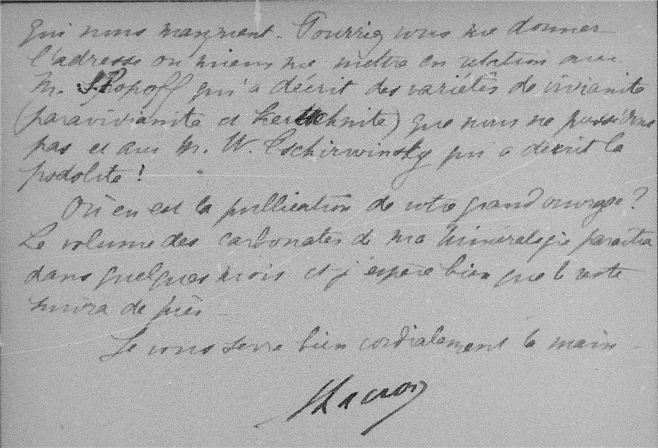 qui nous manquent. Pourriez vous me donner
l'adresse ou mieux me mettre en relation avec
M. S. Popoff qui a décrit des variétés de vivianite
(paravivianite et kertschnite) que nous ne possédons
pas et avec M. W. Tschirwinsky qui a décrit la
podolite !
Où en est la publication de votre grand ouvrage ?
Le volume des carbonates de ma Minéralogie paraîtra
dans quelques mois et j'espère bien que le reste
suivra de près.
Je vous serre bien cordialement la main.
ALacroix